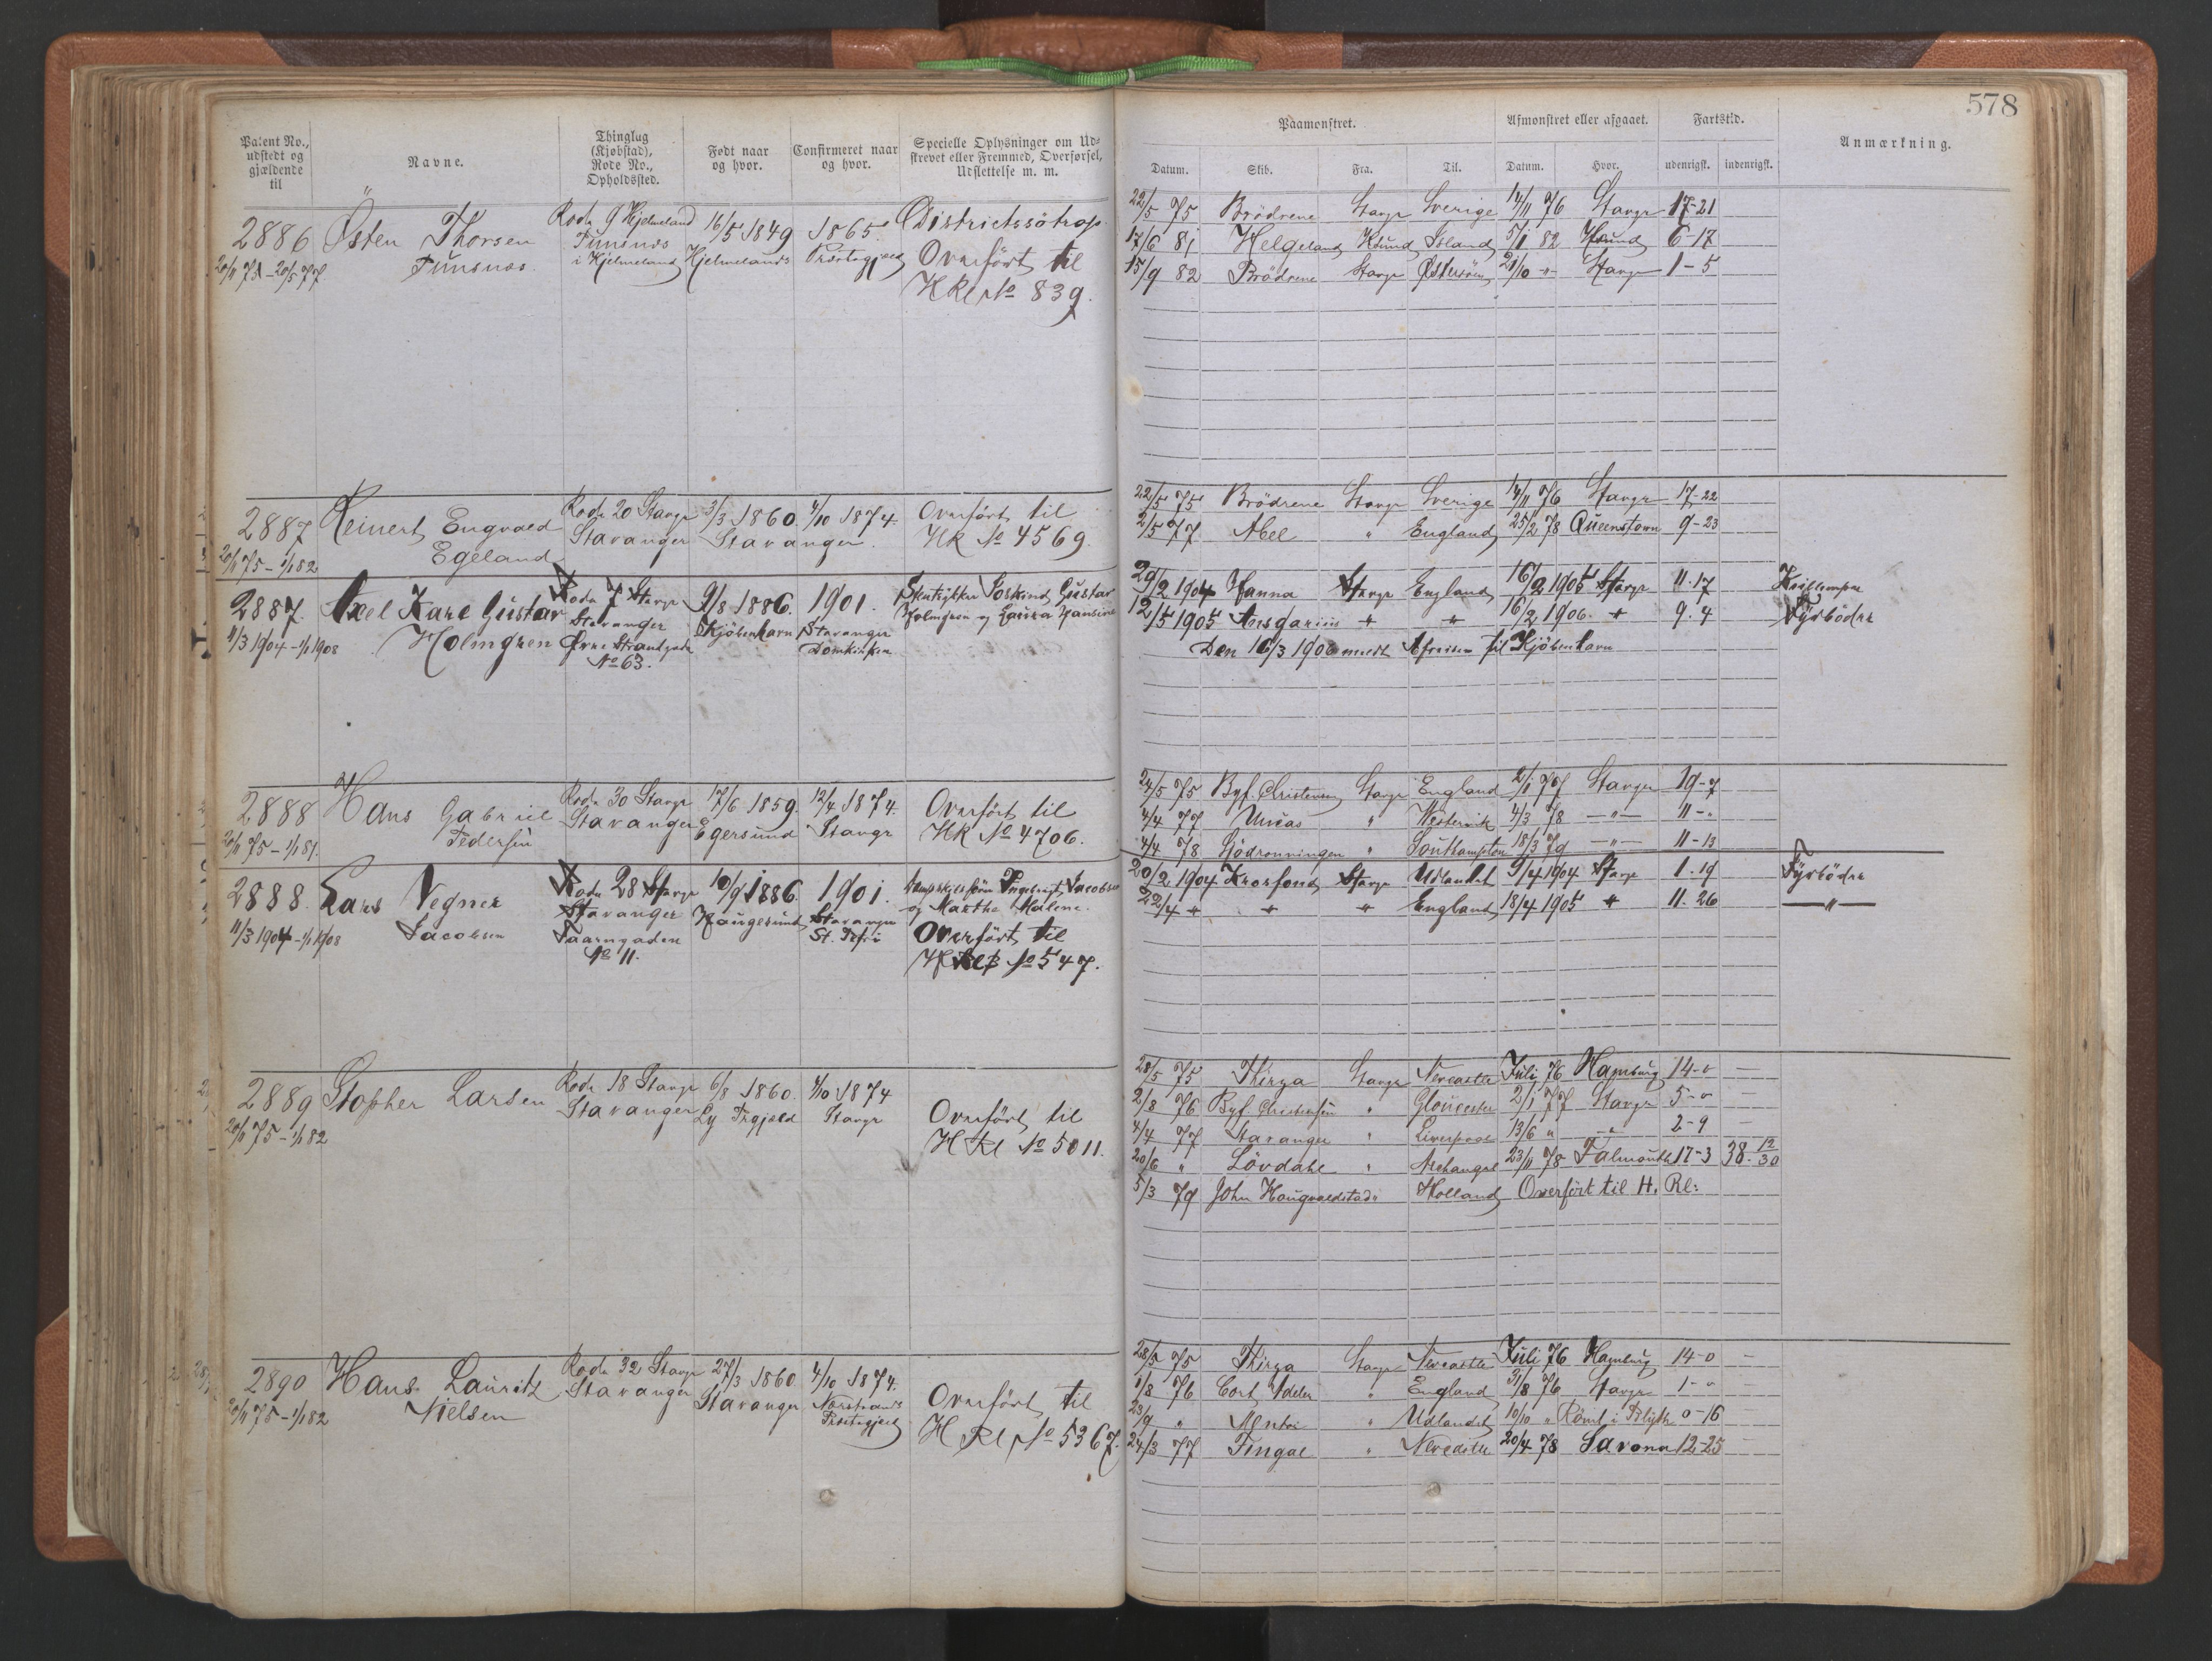 578
Patent No., udstedt og gjældende til
Navne.
Thinglag (Kjøbstad), Rode No., Opholdssted.
Født naar og hvor.
Confirmeret naar og hvor.
Specielle Oplysninger om Udskrevet eller Fremmed, Overførsel, Udslettelse m. m.
Paamonstret.
Afmonstret eller afgaaet.
Fartstid.
Anmærkning.
Datum. Skib. Fra. Til. Datum. Hvor. udenrigsk. indenrigsk.
2886 Østen Thorsen Rode 9 Hjelmeland 16/5 1849 1865 Districtssötrop
Tunsnes Hjelmelands Præstegjeld Overført til
i Hjelmeland
HRl No 839.
22/5 75 Brödrene Stavgr Sverige 14/11 76 Stavgr 17-21
17/6 81 Helgeland Hsund Island 5/1 82 Hsund 6-17
15/9 82 Brödrene Stavgr Østersöen 21/10 -"- Stavgr 1-5
2887 Reinert Engvald Rode 20 Stavgr 3/3 1860. 4/10 1874. Overført til
20/11 75 - 1/1 82 Egeland Stavanger Stavanger. HR No 4569.
22/5 75 Brödrene Stavgr Sverige 14/11 76 Stavgr 17-22
2/5 77 Abel " England 25/2 78 Queenstown 9-23
2887. Axel Karl Gustav Rode 7 Stavgr 9/8 1886. 1901. Gustav
11/3 1904 - 1/1 1908 Holmgren Stavanger Kjöbenhavn Stavanger Holmgren og Hansine
Øvre Strandgade Domkirken
No 63.
29/2 1904 Hanna Stavgr England 16/2 1905 Stavgr 11.17
12/5 1905 16/2 1906. 9.4 Fyrböder
Den 16/3 1906 meldt Afreisen til Kjöbenhavn
2888 Hans Gabriel Rode 30 Stavgr 17/6 1859. 12/4 1874. Overført til
20/11 75 - 1/1 81. Pedersen Stavanger Egersund Stavgr HR No 4706.
24/5 75 Byf. Christensen Stavgr England 2/1 77 Stavgr 19-7
4/4 77 Uncas " Westervik 4/3 78 -"- 11-"
4/4 78 Sjödronningen " Southampton 18/3 79 -"- 11-13
2888. Lars Vegner Rode 28 Stavgr 10/9 1886. 1901. Jacobsen
11/3 1904 - 1/1 1908 Jacobsen Stavanger Haugesund Stavanger og Marthe Malene.
Taarngaden St. Petri Overført til
No 11. No 547.
20/2 1904 Krosfond Stavgr Udlandet 9/4 1904 Stavgr 1.19 Fyrböder
22/4 " " " England 18/4 1905 " 11.26 -"-
2889 Stopher Larsen Rode 18 Stavgr 6/8 1860. 4/10 1874
20/11 75 - 1/1 82 Stavanger Ly Prgjeld Stavgr Overført til
HRl No 5011.
28/5 75 Thirza Stavgr Newcastle Juli 76 Hamburg 14-0
2/8 76 Byf. Christensen " Gloucester 2/1 77 Stavgr 5-0
4/4 77 Stavanger " Liverpool 13/6 " -"- 2-9
20/6 " Lövdahl " Archangel 23/11 78 Falmouth 17-3 38-12/30
5/3 79 John Haugvaldstad " Holland Overført til H. Rl:
2890 Hans Lauritz Rode 32 Stavgr 27/3 1860 4/10 1874.
20/11 75 - 1/1 82 Nielsen Stavanger Stavanger Overført til
HRl No 5367.
28/5 75 Thirza Stavgr Newcastle Juli 76 Hamburg 14-0
1/8 76 Cort Adeler " England 31/8 76 Stavgr 1-0
23/9 " Mentor " Udlandet 10/10 " Römt i 0-16
24/3 77 Fingal " Newcastle 20/4 78 Savona 12-25